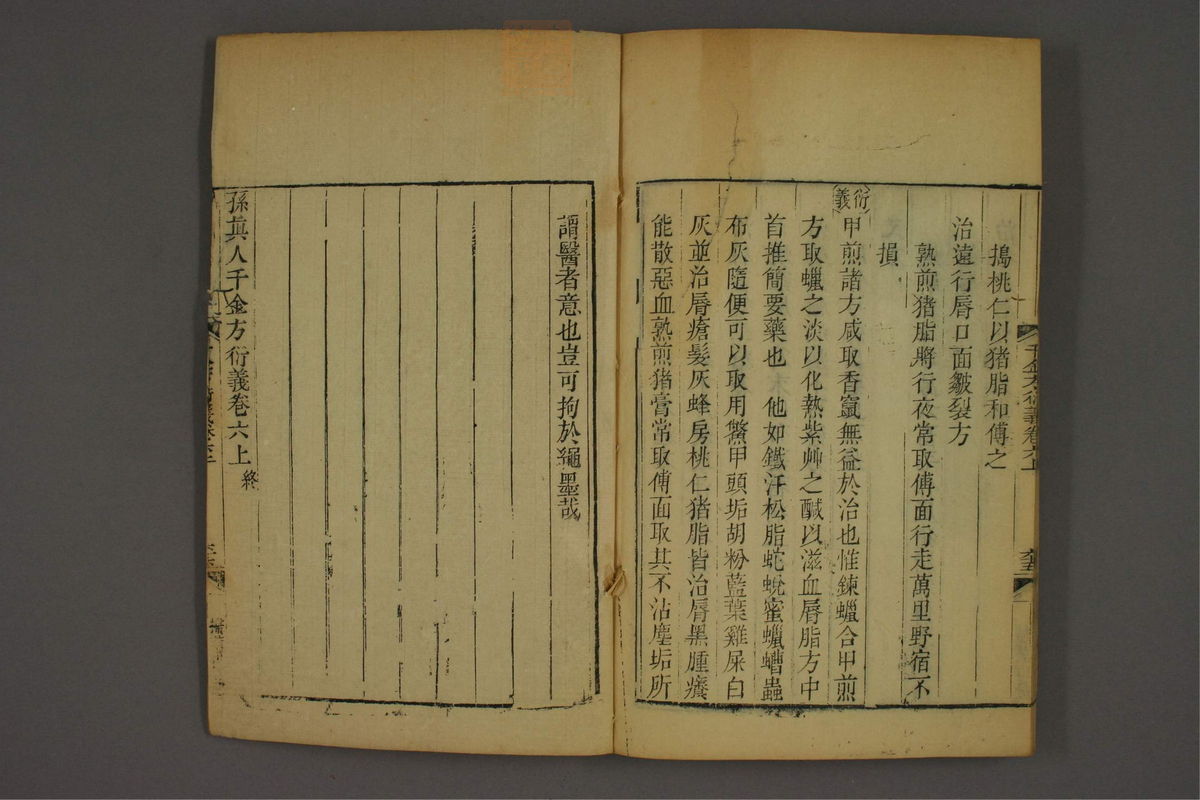 千金方衍義卷六上
搗桃仁以猪脂和傅之
治遠行唇口面皴裂方
熟煎猪脂將行夜常取傅面行走萬里野宿不
損
衍義
甲煎諸方咸取香竄無益於治也惟鍊蠟合甲煎
方取蠟之淡以化熱紫艸之醎以滋血唇脂方中
首推簡要藥也 他如鐵汗松脂蛇蛻蜜蠟蠐蟲
布灰隨便可以取用鱉甲頭垢胡粉藍葉雞屎白
灰並治唇瘡髮灰蜂房桃仁猪脂皆治唇黑腫癢
能散惡血熟煎猪膏常取傅面取其不沾塵垢所
謂醫者意也豈可拘於繩墨哉
孫真人千金方衍義卷六上 終